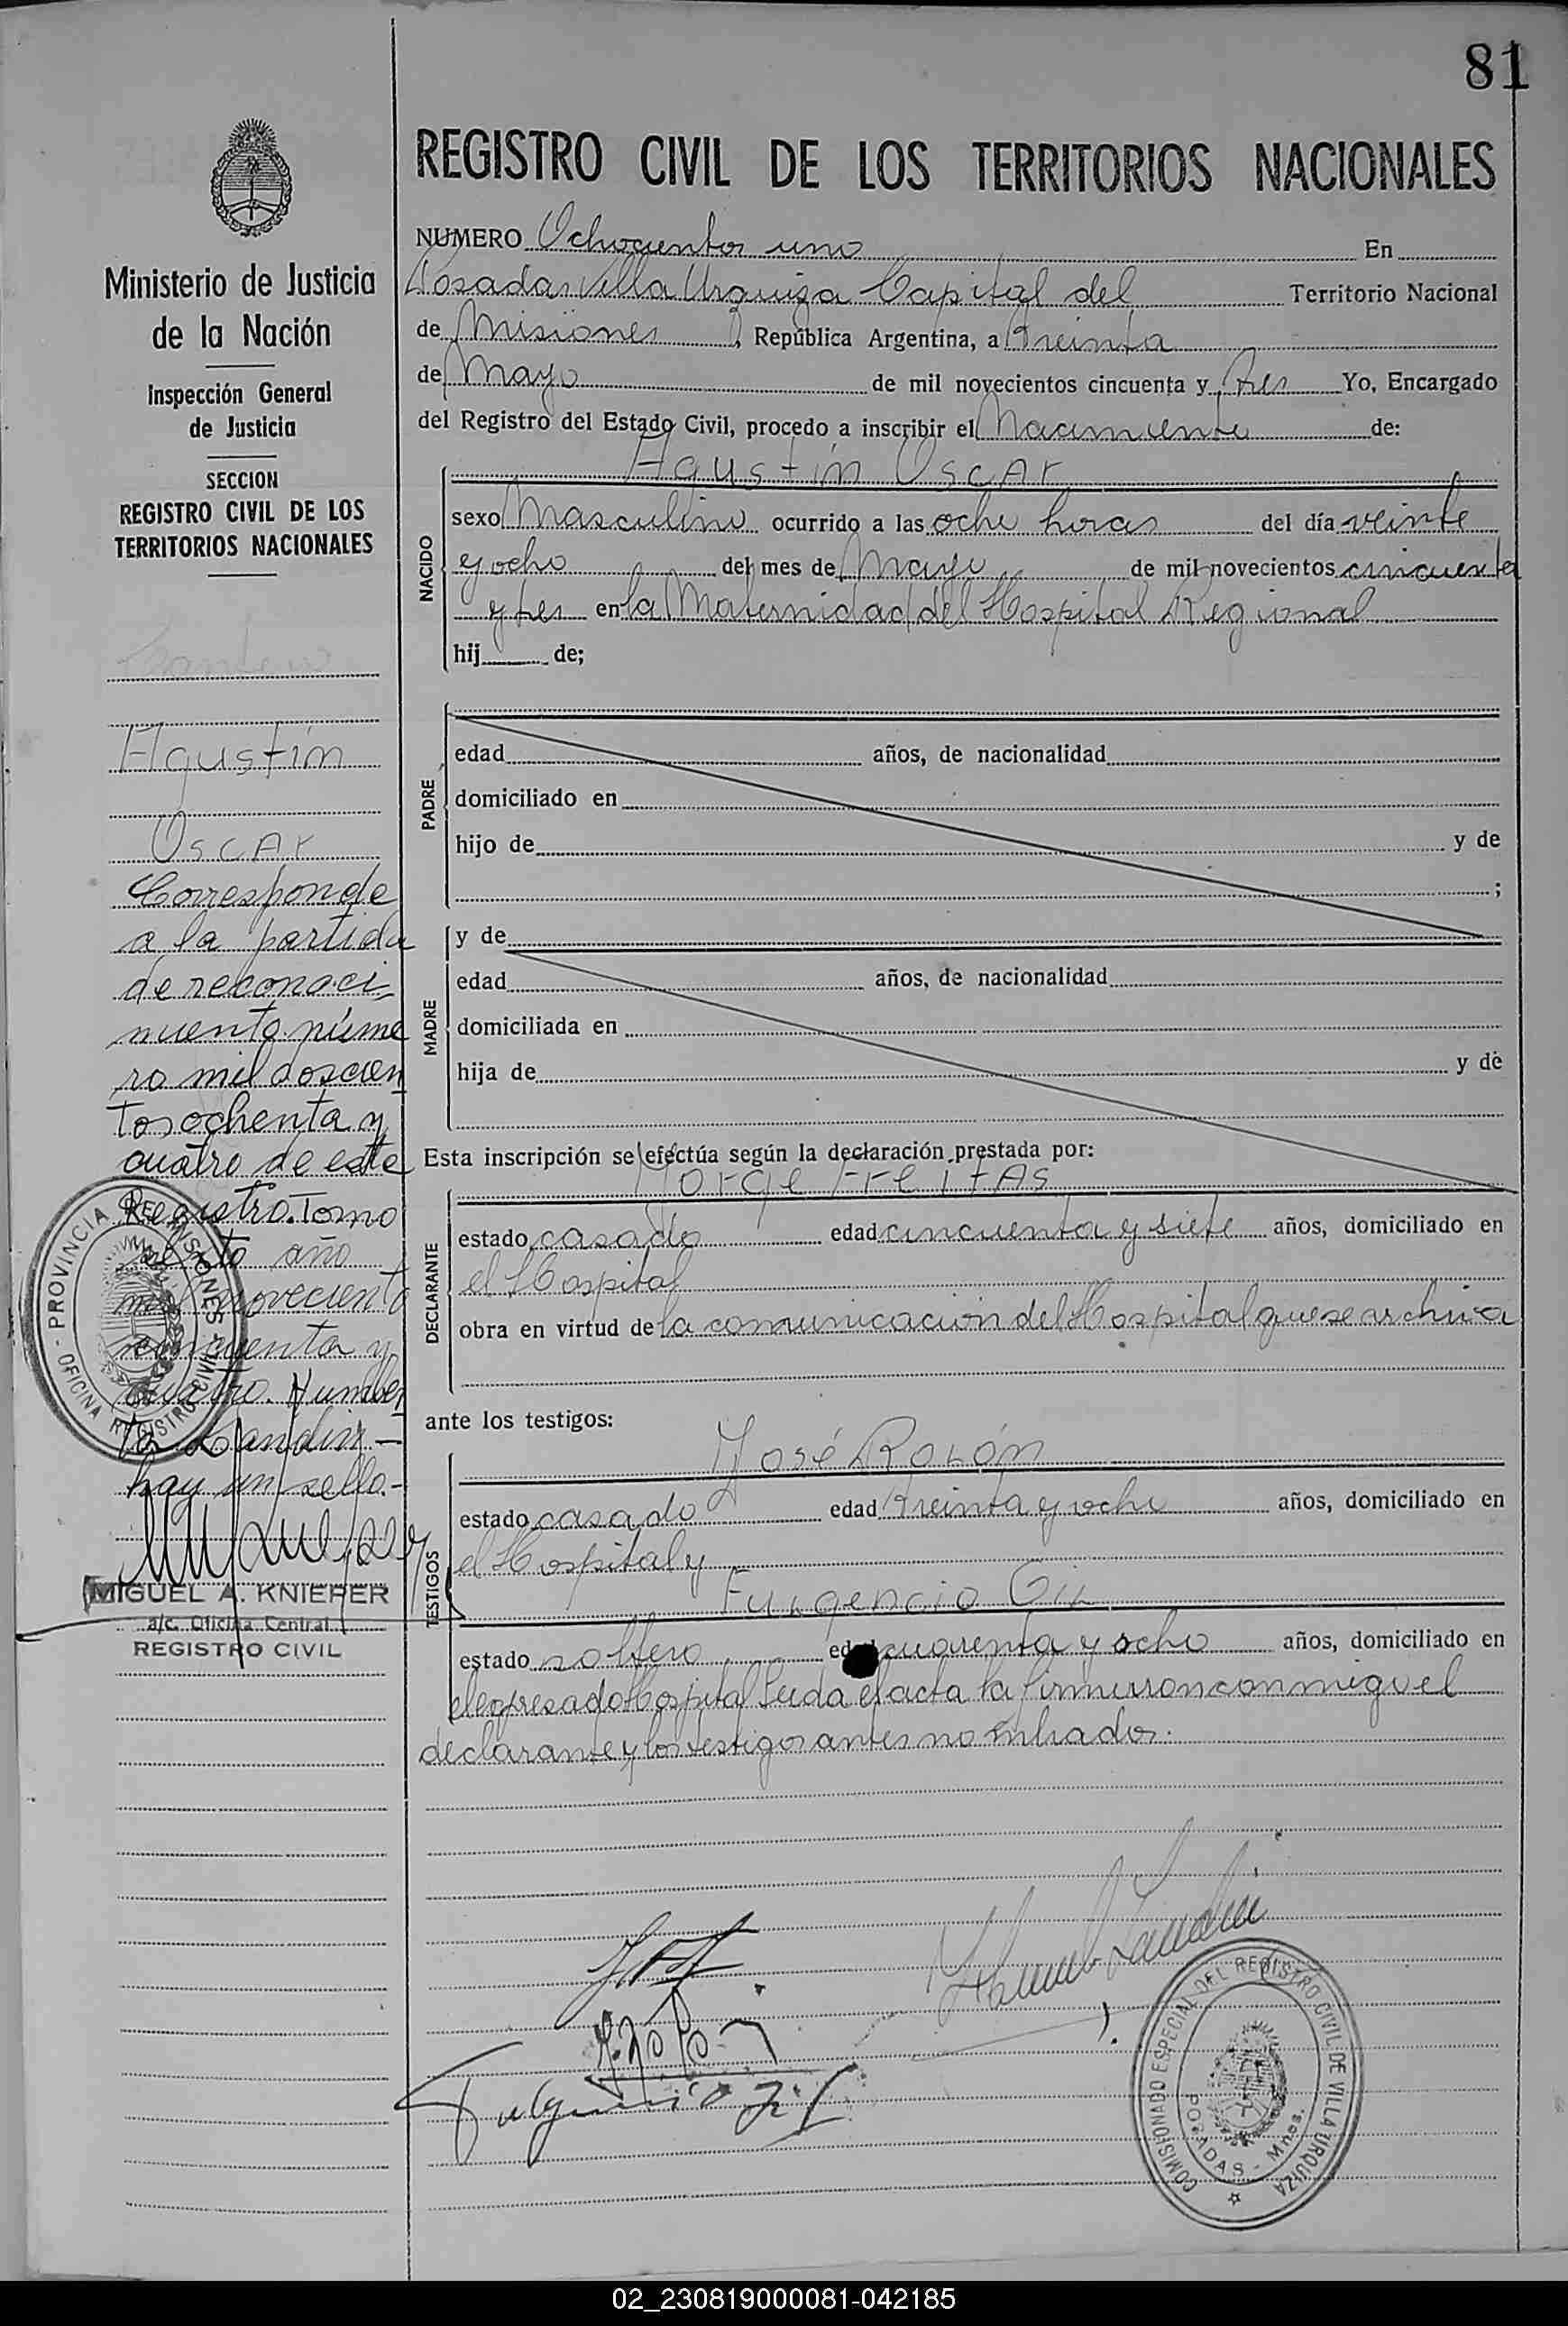 81
REGISTRO CIVIL DE LOS TERRITORIOS NACIONALES
Ministerio de Justicia
de la Nación
Inspección General
de Justicia
SECCION
REGISTRO CIVIL DE LOS
TERRITORIOS NACIONALES
Agustín
Oscar
Corresponde
a la partida
de reconoci
miento núme
ro mil doscien
tos ochenta y
cuatro de este
Registro. Tomo
año
mil novecientos
cincuenta y
cuatro. Humber
to Landin —
hay un sello.-
MIGUEL A. KNIEPER
a/c. Oficina Central
REGISTRO CIVIL
PROVINCIA DE MISIONES - OFICINA REGISTRO CIVIL
NUMERO Ochocientos uno En
Posadas Villa Urquiza Capital del Territorio Nacional
de Misiones, República Argentina, a Treinta
de Mayo de mil novecientos cincuenta y tres Yo, Encargado
del Registro del Estado Civil, procedo a inscribir el Nacimiento de:
Agustín Oscar
NACIDO
sexo Masculino ocurrido a las ocho horas del día veinte
y ocho del mes de Mayo de mil novecientos cincuenta
y tres en la Maternidad del Hospital Regional
hij de;
PADRE
edad años, de nacionalidad
domiciliado en
hijo de y de
;
MADRE
y de
edad años, de nacionalidad
domiciliada en
hija de y de
Esta inscripción se efectúa según la declaración prestada por:
Jorge Freitas
DECLARANTE
estado casado edad cincuenta y siete años, domiciliado en
el Hospital
obra en virtud de la comunicación del Hospital que se archiva
ante los testigos:
José Rolón
TESTIGOS
estado casado edad treinta y ocho años, domiciliado en
el Hospital y
Fulgencio Gil
estado soltero edad cuarenta y ocho años, domiciliado en
el expresado Hospital Leida el acta la firmaron conmigo el
declarante y los testigos antes nombrados.
Fulgencio Gil
COMISIONADO ESPECIAL DEL REGISTRO CIVIL DE VILLA URQUIZA
POSADAS - Mnes.
02_230819000081-042185